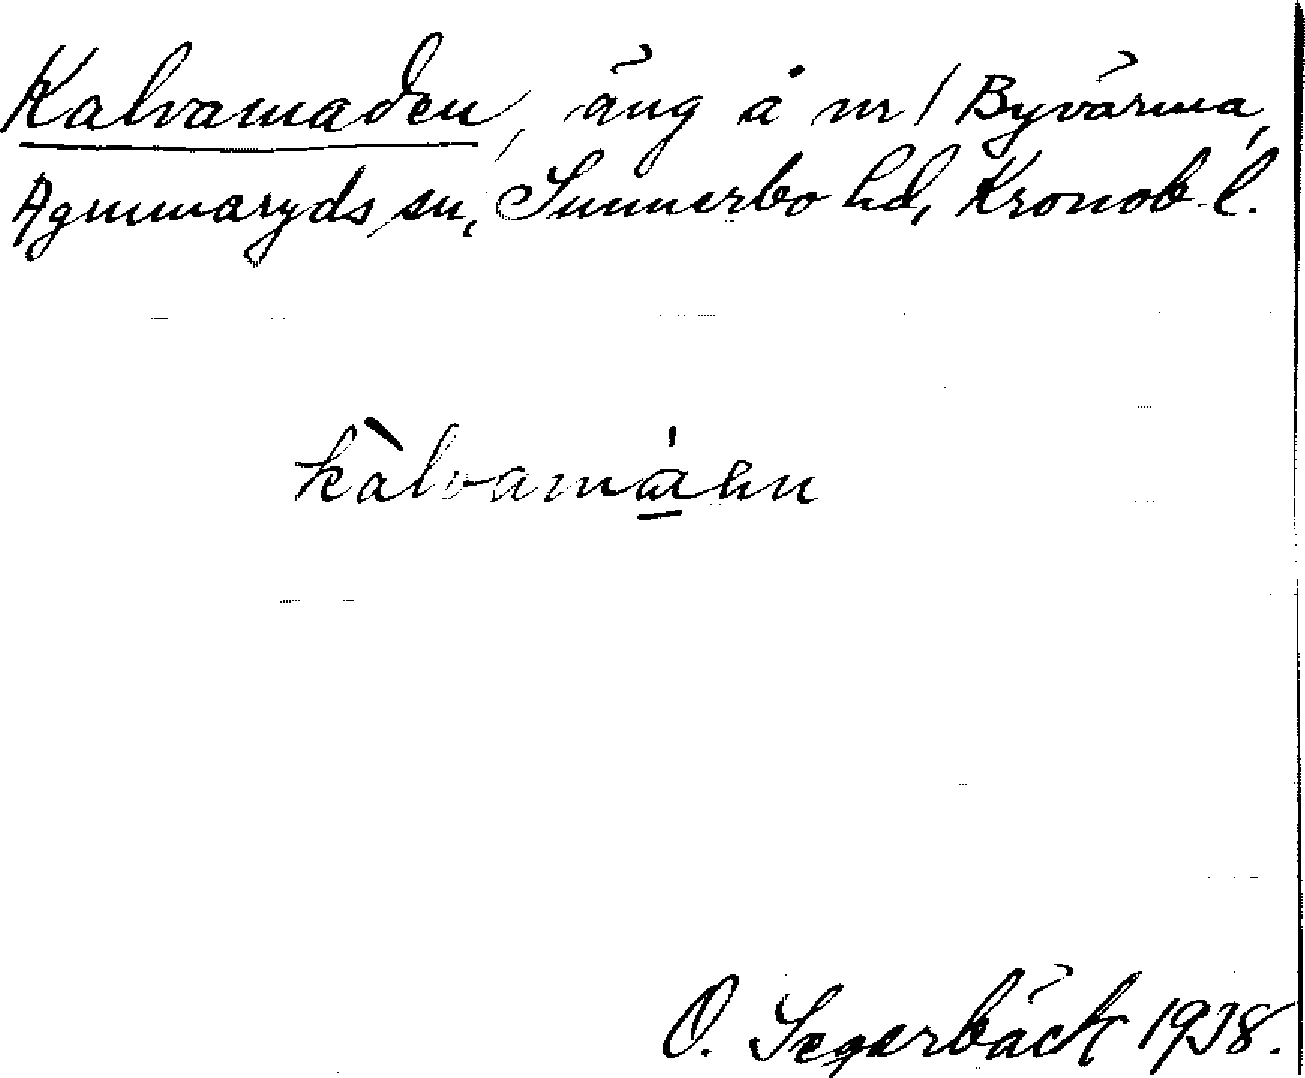 Kalvamaden, äng å nr 1 Byvärma,
Agunnaryds sn, Sunnerbo hd, Kronob. l.
kàlvamáen
O. Segerbäck 1938.